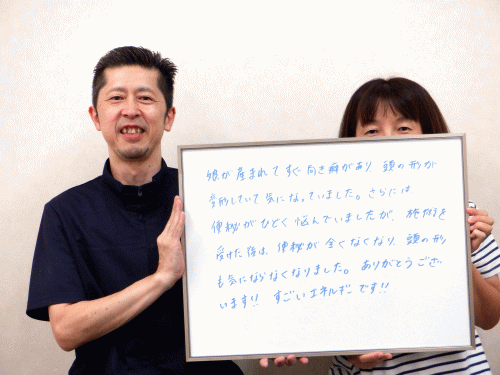 娘が産まれてすぐ向き癖があり、頭の形が
変形していて気になっていました。さらには
便秘がひどく悩んでいましたが、施術を
受けた後は、便秘が全くなくなり、頭の形
も気にならなくなりました。ありがとうござ
います!! すごいエネルギーです!!